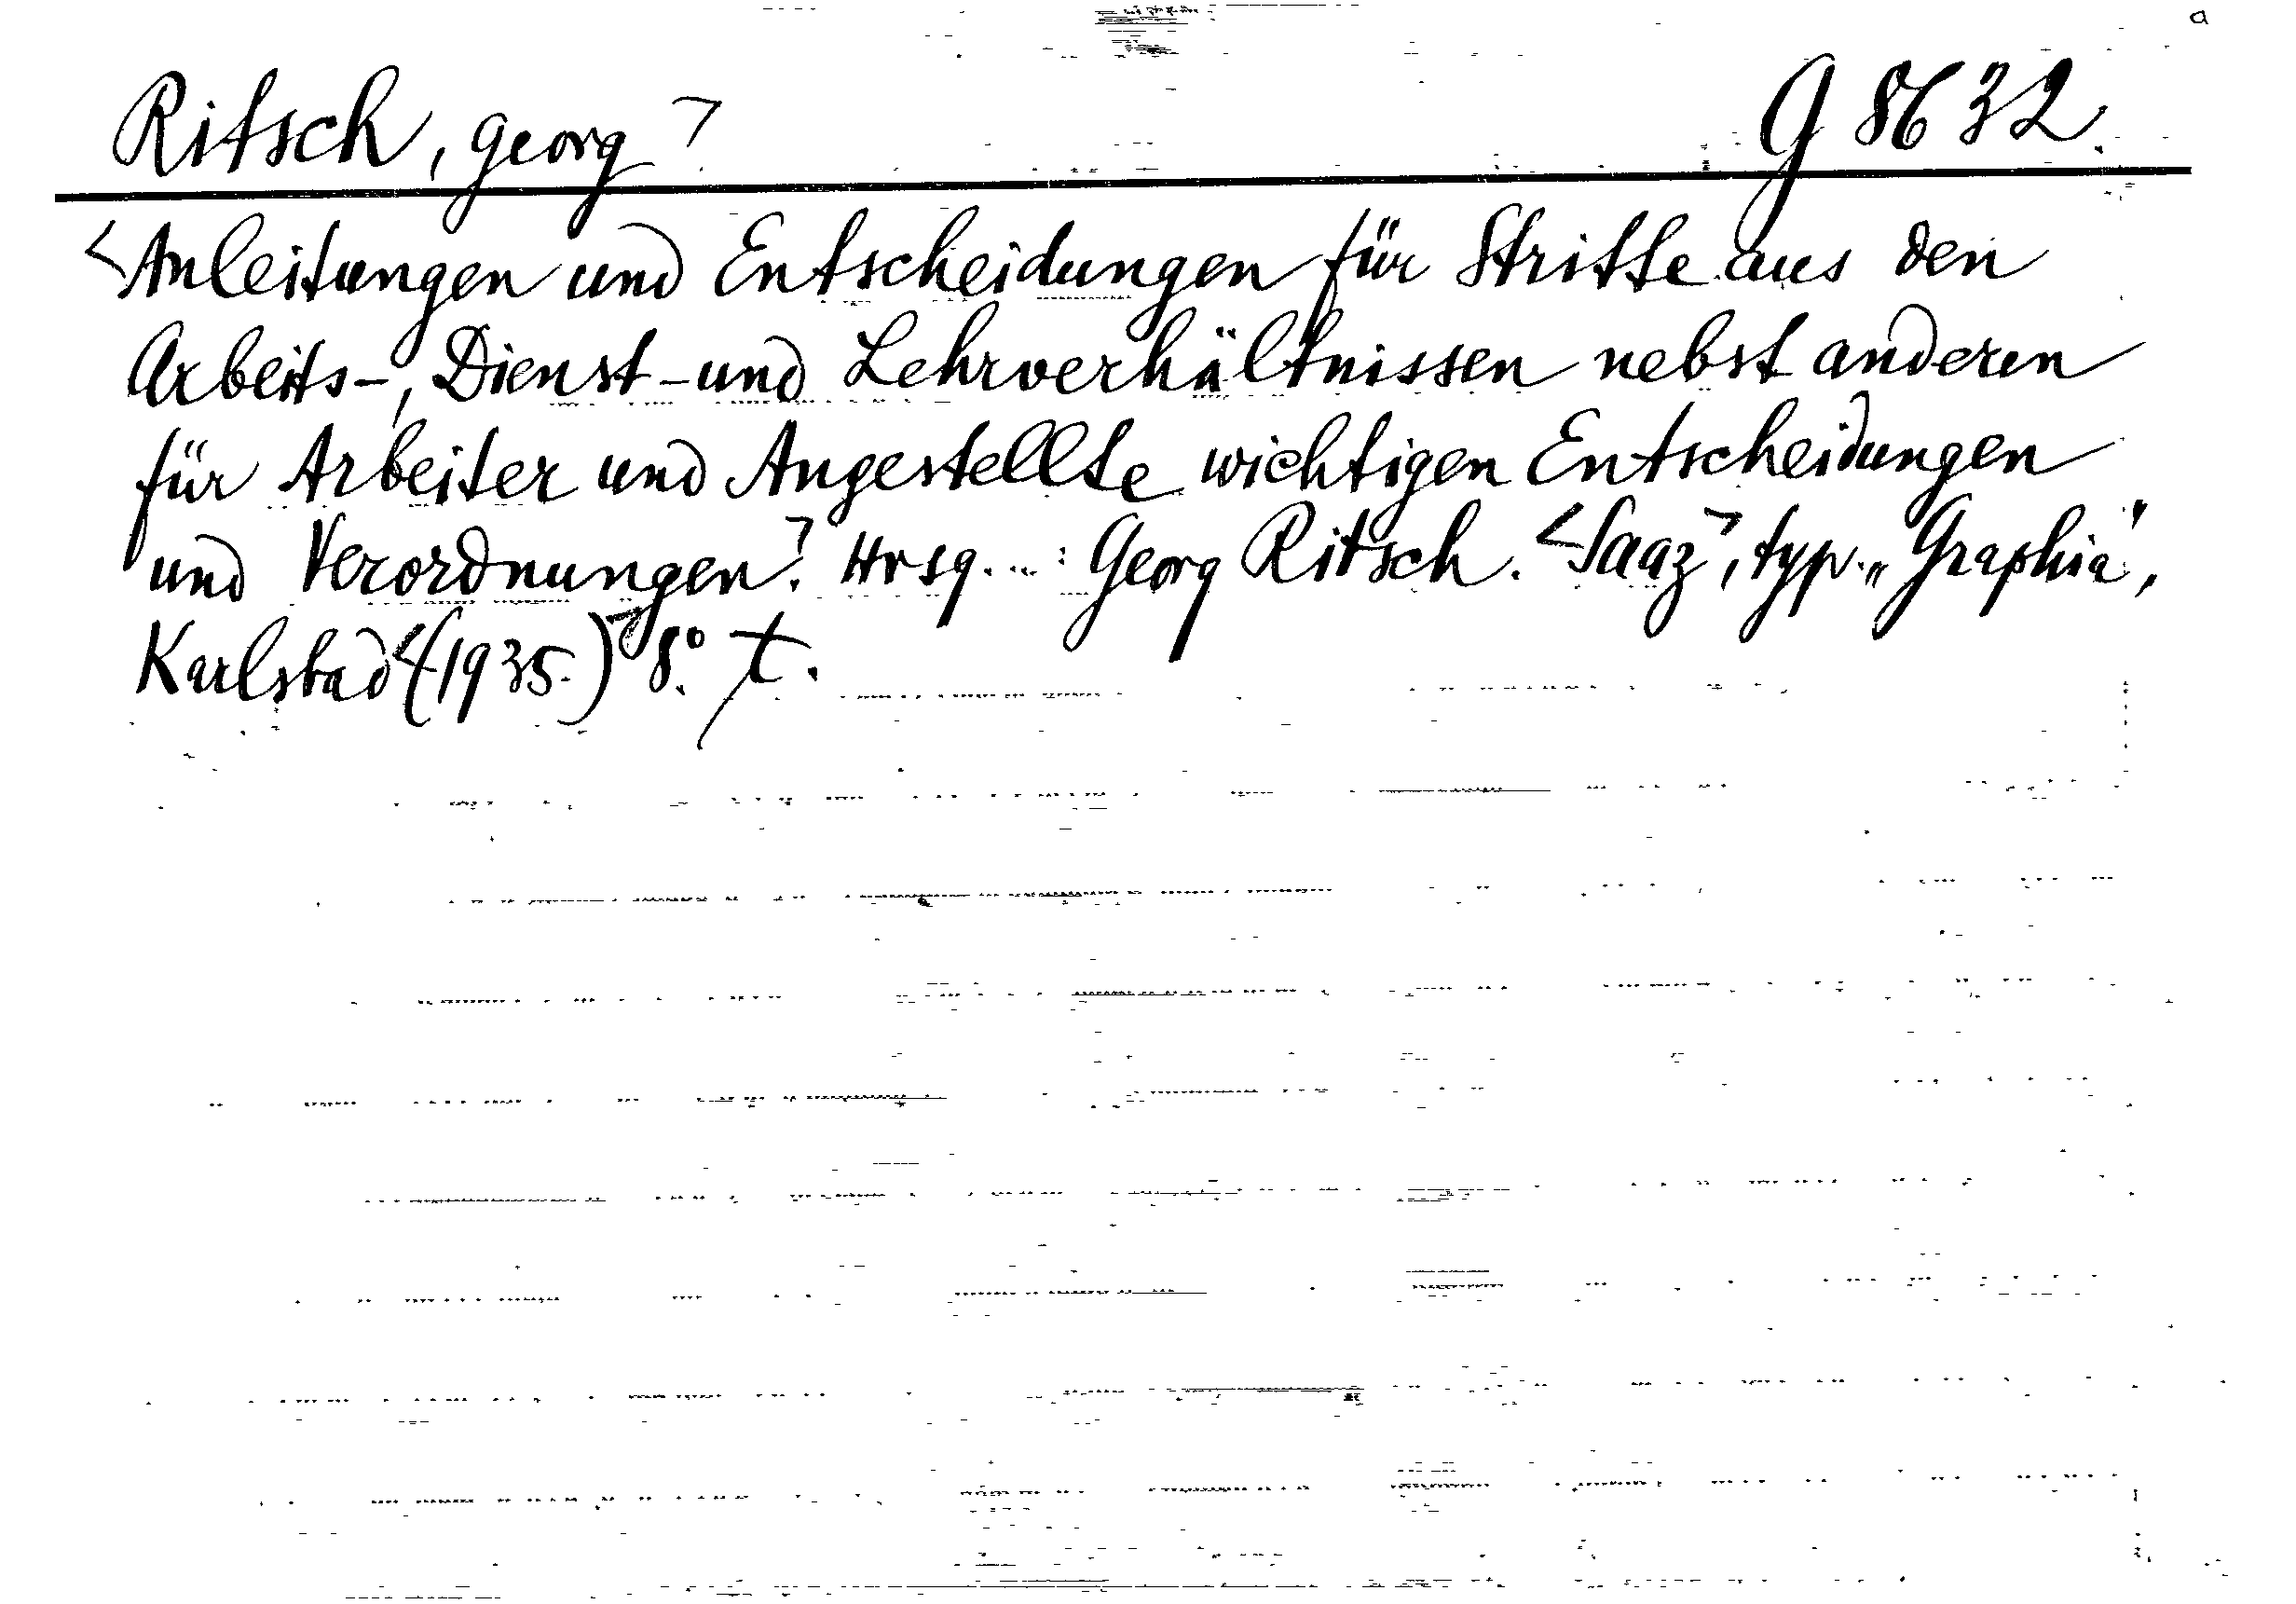 a
Ritsch, Georg ⌝ G 8632.
<Anleitungen und Entscheidungen für Stritte aus den
Arbeits-, Dienst- und Lehrverhältnissen nebst anderen
für Arbeiter und Angestellte wichtigen Entscheidungen
und Verordnungen.⌝ Hrsg...: Georg Ritsch. <Saaz⌝, typ. „Graphia",
Karlsbad <(1935.)⌝ 8°. t.